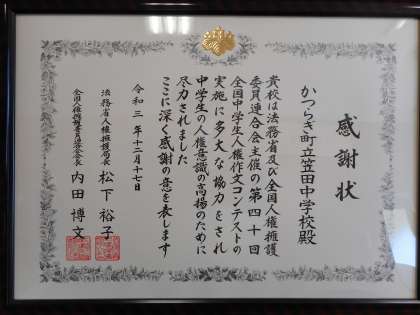 感謝状
かつらぎ町立笠田中学校殿
貴校は法務省及び全国人権擁護
委員連合会主催の第四十回
全国中学生人権作文コンテストの
実施に多大な協力をされ
中学生の人権意識の高揚のために
尽力されました
ここに深く感謝の意を表します
令和三年十二月十七日
法務省人権擁護局長 松下裕子
全国人権擁護委員連合会長 内田博文